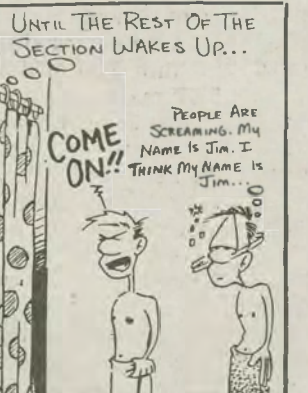 UNTIL THE REST OF THE
SECTION WAKES UP...
COME
ON!!
PEOPLE ARE
SCREAMING. MY
NAME IS JIM. I
THINK MY NAME IS
JIM...